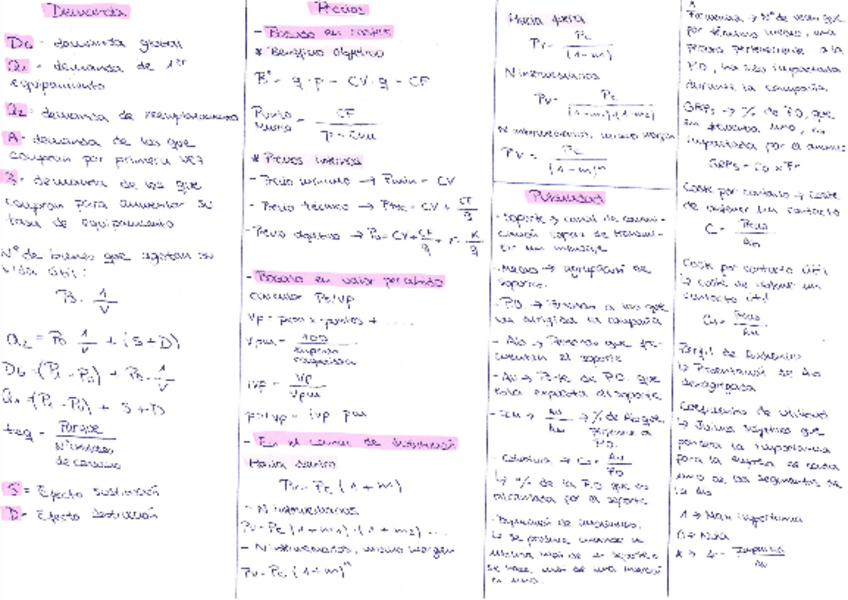 Demanda
DG - demanda global
Q1 - demanda de 1er
equipamiento
Q2 - demanda de reemplazamiento
A - demanda de los que
compran por primera vez
B - demanda de los que
compran para aumentar su
tasa de equipamiento
Nº de bienes que agotan su
vida útil:
P0 · 1/v
Q2 = P0 1/v + (S+D)
DG = (P1 - P0) + P0 · 1/v
Q1 = (P1 - P0) + S + D
teq = Parque / Nº unidades de consumo
S = Efecto sustitución
D = Efecto destrucción
Precios
- Basado en costes
* Beneficio objetivo
B = q · p - CV · q - CF
Punto muerto = CF / p - cvu
* Precios internos
- Precio mínimo → Pmin = CV
- Precio técnico → Ptec = CV + CF/q
- Precio objetivo → Po = CV + CF/q + r · K/q
- Basado en valor percibido
Calcular Pe/Vp
Vp = peso x puntos + ....
Vpm = 100 / empresas
ivp = Vp / Vpm
p · ivp · pm
- En el canal de distribución
Hacia dentro
Pv = Pc (1 + m)
- N intermediarios
Pv = Pc (1 + m1) · (1 + m2) ...
- N intermediarios, mismo margen
Pv = Pc (1 + m)^n
Hacia fuera
Pv = Pc / (1 - m)
N intermediarios
Pv = Pc / (1 - m1)(1 - m2)
N intermediarios, mismo margen
Pv = Pc / (1 - m)^n
Publicidad
- Soporte → canal de comuni-
cación capaz de transmi-
tir un mensaje
- Medio → agrupación de
soportes.
- PO → Personas a las que
va dirigida la campaña
- Au → Personas que fre-
cuentan el soporte
- Au → Parte de P.O. que
está expuesta al soporte
- Cobertura → Co = Au / PO
↳ % de la P.O que es
alcanzada por el soporte
- Duplicación de audiencias.
↳ se produce cuando se
utiliza más de un soporte o
se hace más de una inserción
en uno.
Frecuencia → Nº de veces que
por término medio, una
persona perteneciente a la
P.O, ha sido impactada
durante la campaña
GRPs → % de P.O, que
impactada por el anuncio
GRPs = Co x Fr
Coste por contacto → Coste
de obtener un contacto
C =
Coste por contacto útil
↳ coste de obtener un
contacto útil
Perfil de audiencia
↳ Presentación de Au
desagregada
Coeficientes de utilidad
↳ Juicio subjetivo que
pondera la importancia
para la empresa de cada
uno de los segmentos de
la Au
1 → Max importancia
0 → Nula